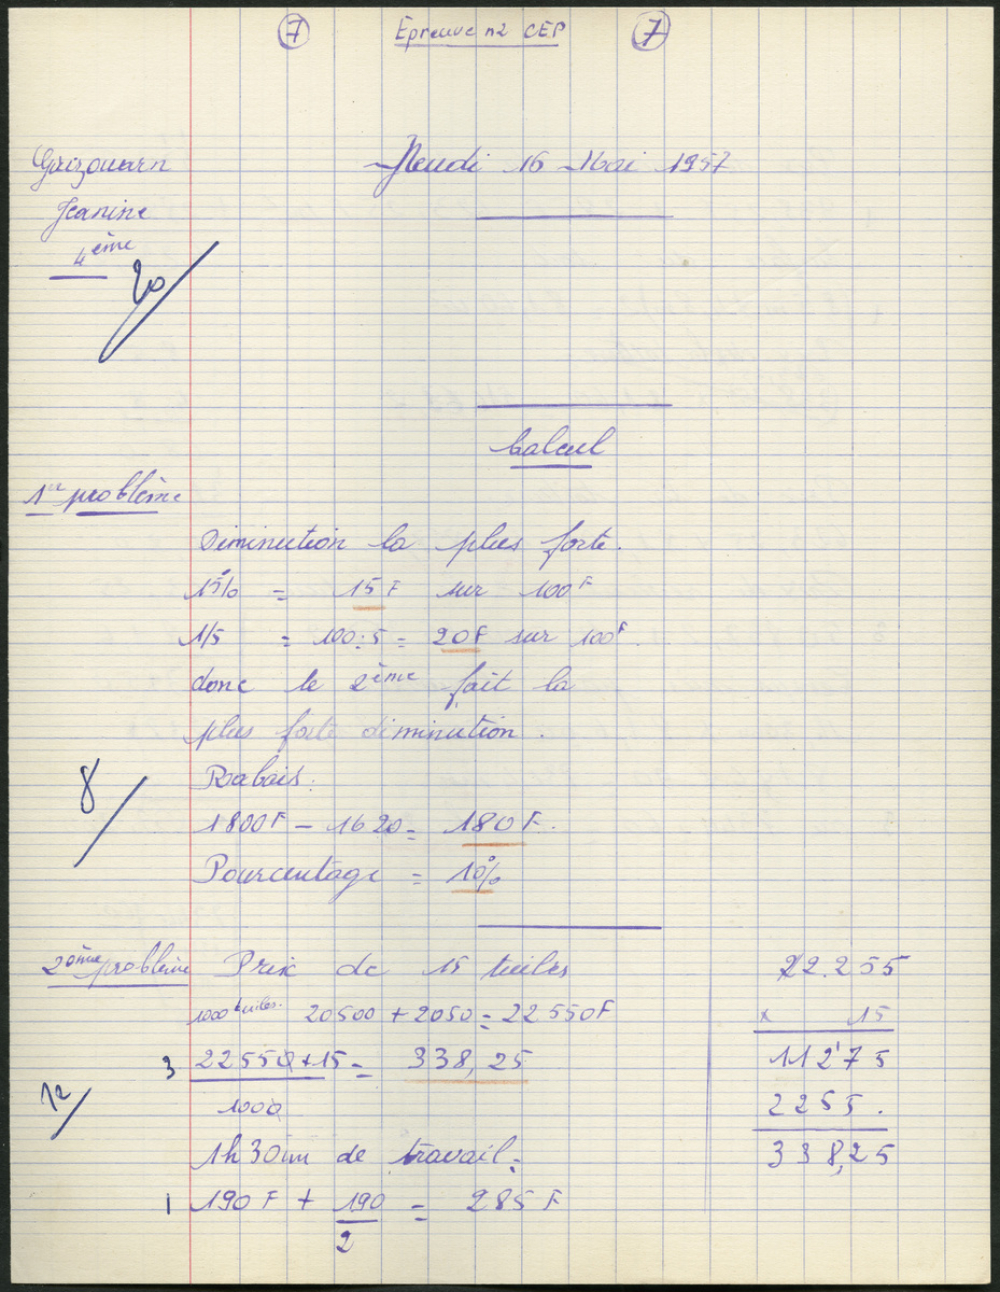 7 Epreuve n2 CEP 7
Jeudi 16 Mai 1957
Guizouarn
Jeanine
4ème
20
Calcul
1er problème
Diminution la plus forte.
15% = 15F sur 100F
1/5 = 100:5 = 20F sur 100F.
donc le 2ème fait la
plus forte diminution.
Rabais.
8
1800F - 1620 = 180F.
Pourcentage = 10%
2ème problème Prix de 15 tuiles
1000 tuiles. 20500 + 2050 = 22550F
3 22550 + 15 = 338,25
1000
12
1h30m de travail:
1 190F + 190 = 285F
2
22.255
x 15
11275
2255.
338,25